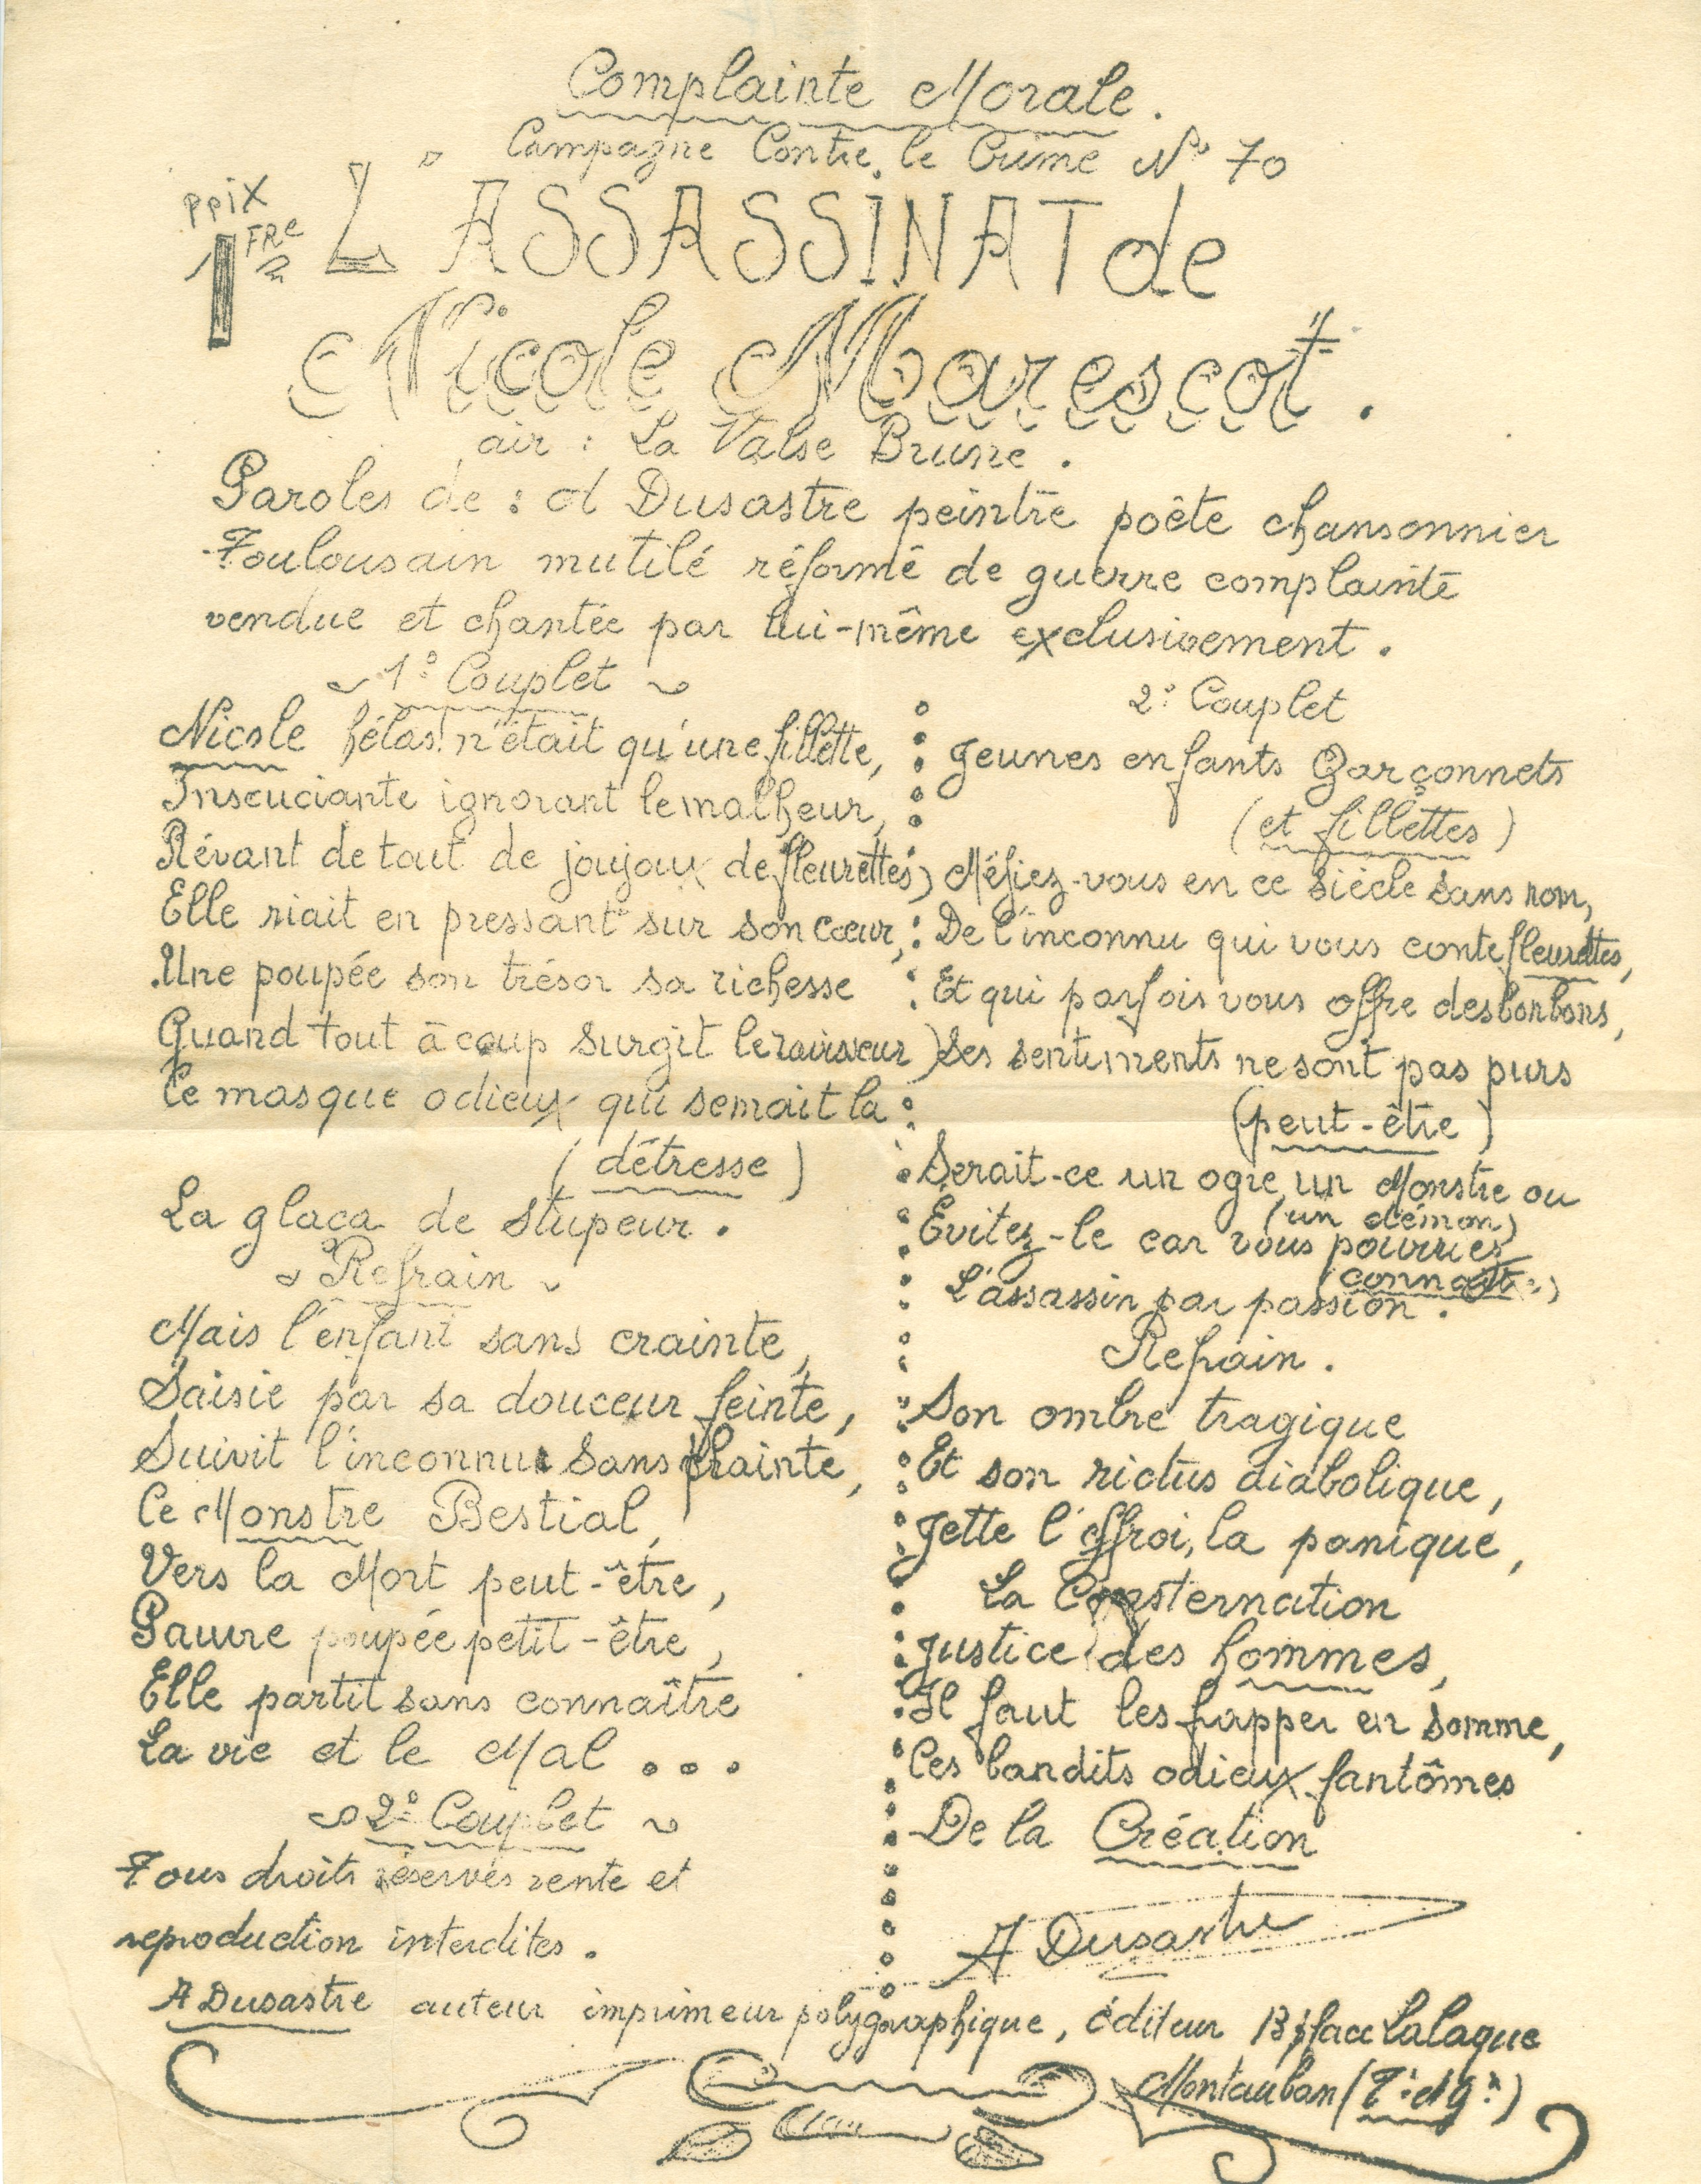 Complainte Morale.
Campagne Contre le Crime N° 70
PRIX
1 FRc
L'ASSASSINAT de
Nicole Marescot.
air : La Valse Brune.
Paroles de : A Dusastre peintre poête chansonnier
Toulousain mutilé réformé de guerre complainte
vendue et chantée par lui-même exclusivement.
1° Couplet
Nicole hélas! n'était qu'une fillette,
Insouciante ignorant le malheur,
Rêvant de tout de joujoux de fleurettes,
Elle riait en pressant sur son cœur,
Une poupée son trésor sa richesse
Quand tout à coup surgit le ravisseur
Ce masque odieux qui semait la
(détresse)
La glaça de stupeur.
Refrain
Mais l'enfant sans crainte,
Saisie par sa douceur feinte,
Suivit l'inconnu sans plainte,
Ce Monstre Bestial,
Vers la Mort peut-être,
Pauvre poupée petit-être,
Elle partit sans connaître
La vie et le Mal ...
2° Couplet
Tous droits réservés vente et
reproduction interdites.
2° Couplet
Jeunes enfants Garçonnets
(et fillettes)
Méfiez-vous en ce siècle sans nom,
De l'inconnu qui vous conte fleurettes,
Et qui parfois vous offre des bonbons,
Ses sentiments ne sont pas purs
(peut-être)
Serait-ce un ogre, un Monstre ou
(un démon)
Évitez-le car vous pourriez
(connaître)
L'assassin par passion.
Refrain.
Son ombre tragique
Et son rictus diabolique,
Jette l'effroi, la panique,
La Consternation
Justice des hommes,
Il faut les frapper en somme,
Ces bandits odieux fantômes
De la Création
A Dusastre
A Dusastre auteur imprimeur polygraphique, éditeur 13 place Lalaque
Montauban (T. et G.)